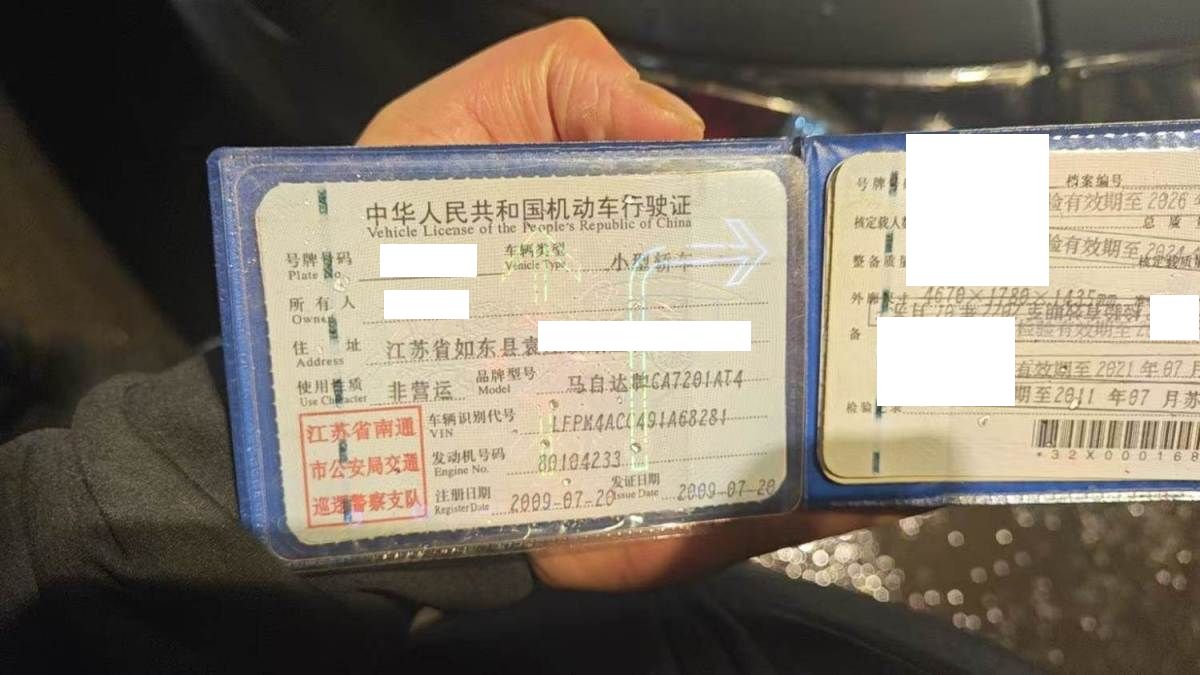 中华人民共和国机动车行驶证
Vehicle License of the People's Republic of China
号牌号码 车辆类型 小型轿车
Plate No. Vehicle Type
所有人
Owner
住址 江苏省如东县袁
Address
使用性质 非营运 品牌型号 马自达牌CA7201AT4
Use Character Model
江苏省南通
市公安局交通
巡逻警察支队
车辆识别代号 LFPM4ACC491A68281
VIN
发动机号码 80104233
Engine No.
注册日期 2009-07-20 发证日期 2009-07-20
Register Date Issue Date
号牌 档案编号
验有效期至 2026
核定载人数 总质
验有效期至 2024
整备质量 核定载质量
外廓尺寸 4670×1780×1435mm
备
检验有效期至
有效期至 2021 年 07 月
期至 2011 年 07 月苏
检验记录
*32X000168